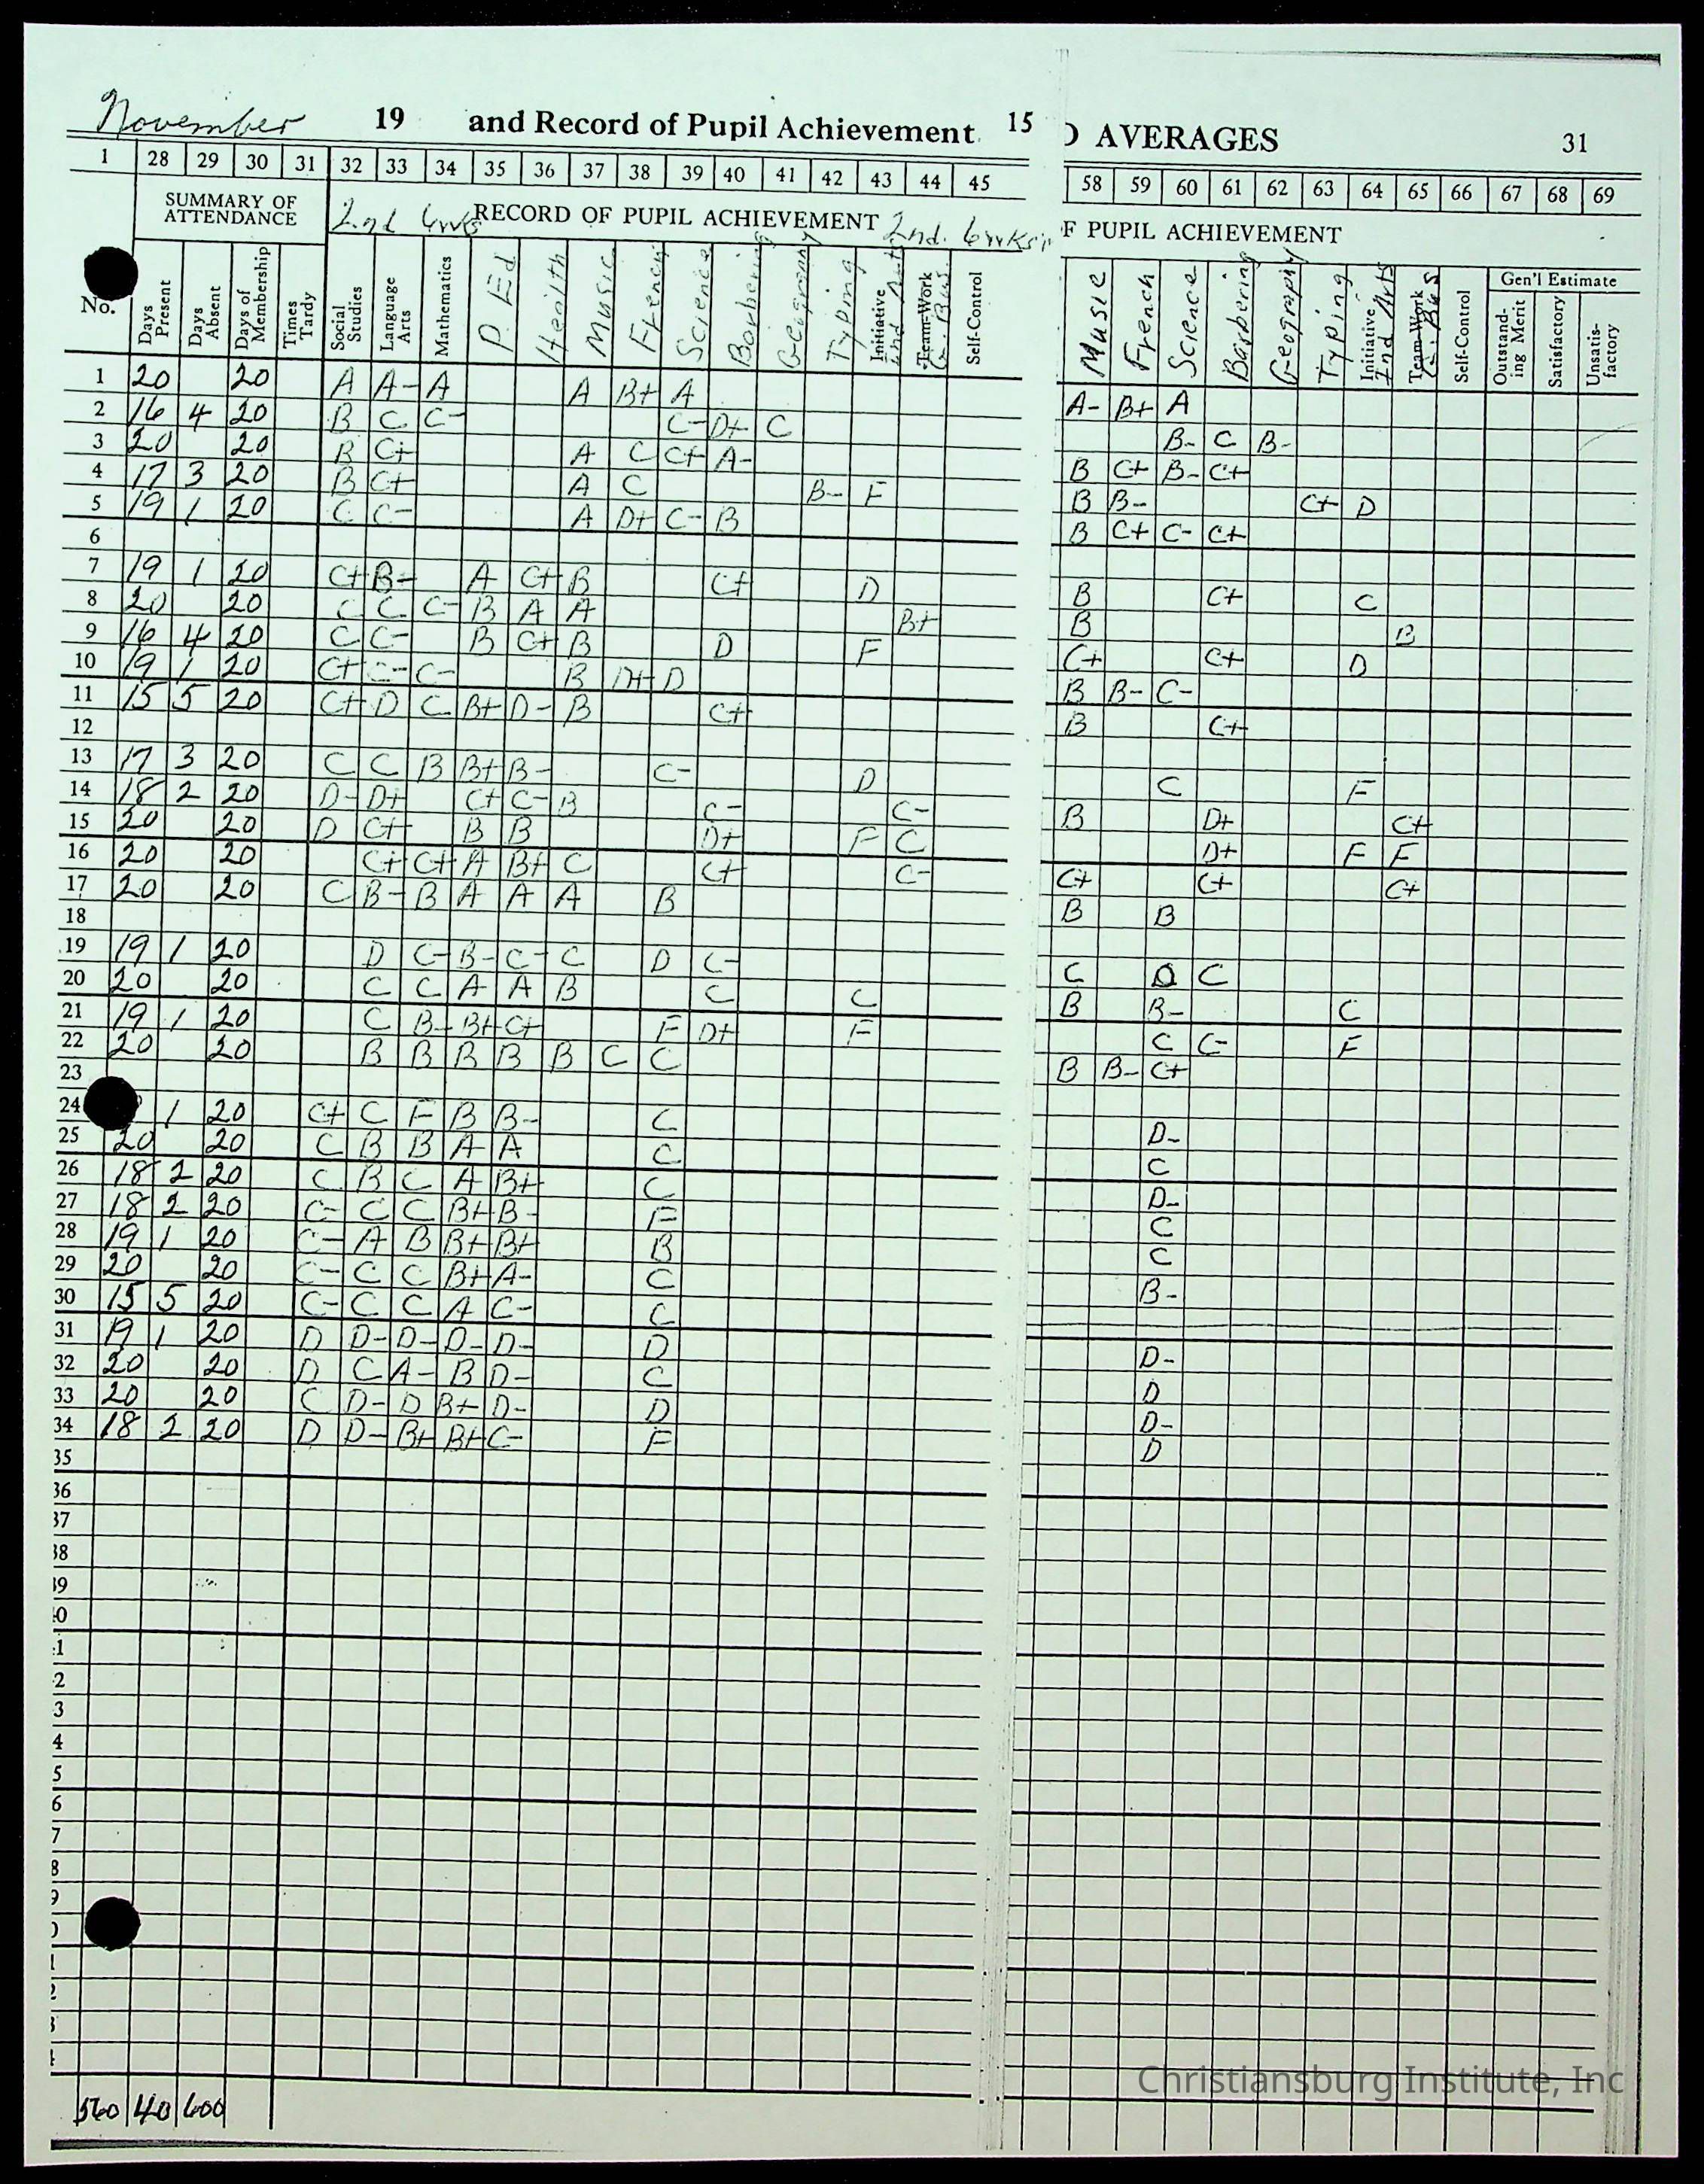 November 19 and Record of Pupil Achievement. 15 D AVERAGES 31
1 28 29 30 31 32 33 34 35 36 37 38 39 40 41 42 43 44 45 58 59 60 61 62 63 64 65 66 67 68 69
SUMMARY OF ATTENDANCE 2nd 6wks RECORD OF PUPIL ACHIEVEMENT 2nd. 6wks F PUPIL ACHIEVEMENT
No. Days Present Days Absent Days of Membership Times Tardy Social Studies Language Arts Mathematics P. Ed Health Music French Science Barbering Geography Typing Initiative Ind Arts Team-Work G. Bus. Self-Control Music French Science Barbering Geography Typing Initiative Ind Arts Team-Work G. Bus Self-Control Gen'l Estimate Outstanding Merit Satisfactory Unsatisfactory
1 20 20 A A- A A B+ A A- B+ A
2 16 4 20 B C C- C- D+ C B- C B-
3 20 20 B C+ A C C+ A- B C+ B- C+
4 17 3 20 B C+ A C B- F B B- C+ D
5 19 1 20 C C- A D+ C- B B C+ C- C+
6
7 19 1 20 C+ B- A C+ B C+ D B C+ C
8 20 20 C C C- B A A B+ B B
9 16 4 20 C C- B C+ B D F C+ C+ D
10 19 1 20 C+ C- C- B D+ D B B- C-
11 15 5 20 C+ D C B+ D- B C+ B C+
12
13 17 3 20 C C B B+ B- C- D C F
14 18 2 20 D- D+ C+ C- B C- C- B D+ C+
15 20 20 D C+ B B D+ F C D+ F F
16 20 20 C+ C+ A B+ C C+ C- C+ C+ C+
17 20 20 C B- B A A A B B B
18
19 19 1 20 D C- B- C- C D C- C D C
20 20 20 C C A A B C C B B- C
21 19 1 20 C B- B+ C+ F D+ F C C- F
22 20 20 B B B B B C C B B- C+
23
24 1 20 C+ C F B B- C D-
25 20 20 C B B A A C C
26 18 2 20 C B C A B+ C D-
27 18 2 20 C- C C B+ B- F C
28 19 1 20 C- A B B+ B+ B C
29 20 20 C- C C B+ A- C B-
30 15 5 20 C- C C A C- C
31 19 1 20 D D- D- D- D- D D-
32 20 20 D C A- B D- C D
33 20 20 C D- D B+ D- D D-
34 18 2 20 D D- B+ B+ C- F D
35
36
37
38
39
40
1
2
3
4
5
6
7
8
9
0
1
2
3
560 40 600
Christiansburg Institute, Inc